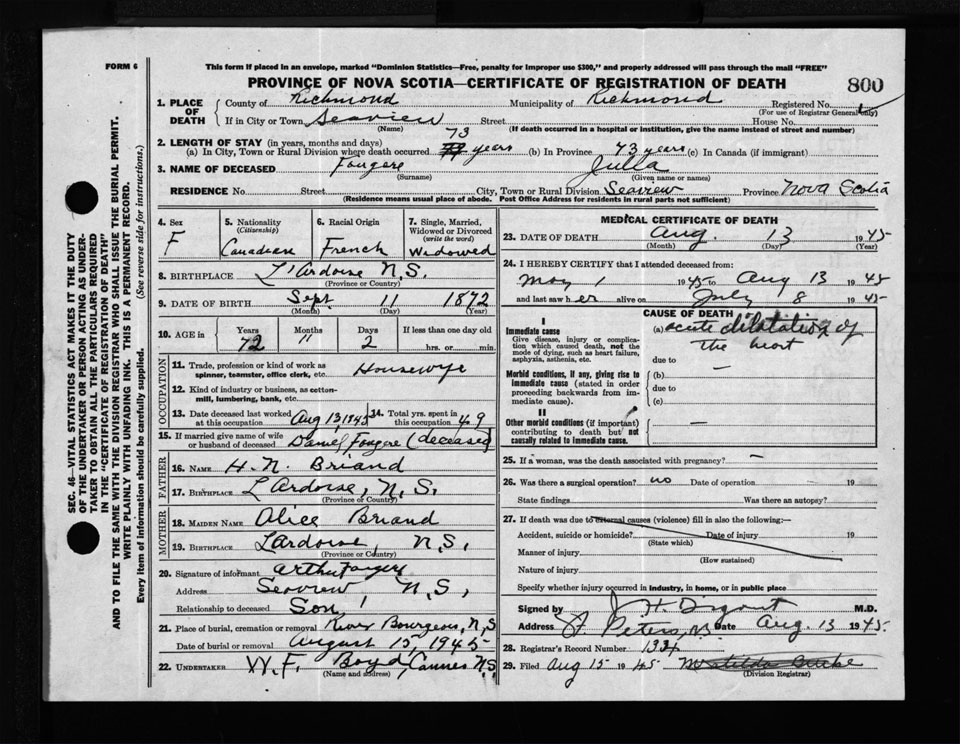 FORM 6
This form if placed in an envelope, marked "Dominion Statistics—Free, penalty for improper use $300," and properly addressed will pass through the mail "FREE"
PROVINCE OF NOVA SCOTIA—CERTIFICATE OF REGISTRATION OF DEATH
800
1. PLACE OF DEATH County of Richmond Municipality of Richmond Registered No.
(For use of Registrar General only)
If in City or Town Seaview Street House No.
(Name) (If death occurred in a hospital or institution, give the name instead of street and number)
2. LENGTH OF STAY (in years, months and days)
(a) In City, Town or Rural Division where death occurred 73 years (b) In Province 73 years (c) In Canada (if immigrant)
3. NAME OF DECEASED Fougere Julla
(Surname) (Given name or names)
RESIDENCE No. Street City, Town or Rural Division Seaview Province Nova Scotia
(Residence means usual place of abode. Post Office Address for residents in rural parts not sufficient)
SEC. 46—VITAL STATISTICS ACT MAKES IT THE DUTY
OF THE UNDERTAKER OR PERSON ACTING AS UNDER-
TAKER TO OBTAIN ALL THE PARTICULARS REQUIRED
IN THE "CERTIFICATE OF REGISTRATION OF DEATH"
AND TO FILE THE SAME WITH THE DIVISION REGISTRAR WHO SHALL ISSUE THE BURIAL PERMIT.
WRITE PLAINLY WITH UNFADING INK. THIS IS A PERMANENT RECORD.
Every item of information should be carefully supplied. (See reverse side for instructions.)
4. Sex F
5. Nationality (Citizenship) Canadian
6. Racial Origin French
7. Single, Married, Widowed or Divorced (write the word) Widowed
8. BIRTHPLACE L'Ardoise N.S.
(Province or Country)
9. DATE OF BIRTH Sept 11 1872
(Month) (Day) (Year)
10. AGE in Years 72 Months 11 Days 2 If less than one day old hrs. or min.
OCCUPATION
11. Trade, profession or kind of work as spinner, teamster, office clerk, etc. Housewife
12. Kind of industry or business, as cotton-mill, lumbering, bank, etc.
13. Date deceased last worked at this occupation Aug 13 1945
14. Total yrs. spent in this occupation 49
15. If married give name of wife or husband of deceased Daniel Fougere (deceased)
FATHER
16. NAME H. N. Briand
17. BIRTHPLACE L'Ardoise, N.S.
(Province or Country)
MOTHER
18. MAIDEN NAME Alice Briand
19. BIRTHPLACE L'Ardoise, N.S.
(Province or Country)
20. Signature of informant Arthur Fougere
Address Seaview N.S.
Relationship to deceased Son
21. Place of burial, cremation or removal River Bourgeois, N.S
Date of burial or removal August 15, 1945
22. UNDERTAKER W. F. Boyd, Cannes N.S.
(Name and address)
MEDICAL CERTIFICATE OF DEATH
23. DATE OF DEATH Aug. 13 1945
(Month) (Day) (Year)
24. I HEREBY CERTIFY that I attended deceased from:
May 1 1945 to Aug 13 1945
and last saw her alive on July 8 1945
CAUSE OF DEATH
I
Immediate cause
Give disease, injury or complication which caused death, not the mode of dying, such as heart failure, asphyxia, asthenia, etc.
(a) acute dilatation of
the heart
due to
Morbid conditions, if any, giving rise to immediate cause (stated in order proceeding backwards from immediate cause).
(b) —
due to
(c)
II
Other morbid conditions (if important) contributing to death but not causally related to immediate cause. —
25. If a woman, was the death associated with pregnancy? —
26. Was there a surgical operation? no Date of operation - 19
State findings Was there an autopsy?
27. If death was due to external causes (violence) fill in also the following:—
Accident, suicide or homicide? Date of injury 19
(State which)
Manner of injury
(How sustained)
Nature of injury
Specify whether injury occurred in industry, in home, or in public place
Signed by J H Digout M.D.
Address St Peters, NS Date Aug. 13 1945
28. Registrar's Record Number 1334
29. Filed Aug 15 1945 Matilda Burke
(Division Registrar)